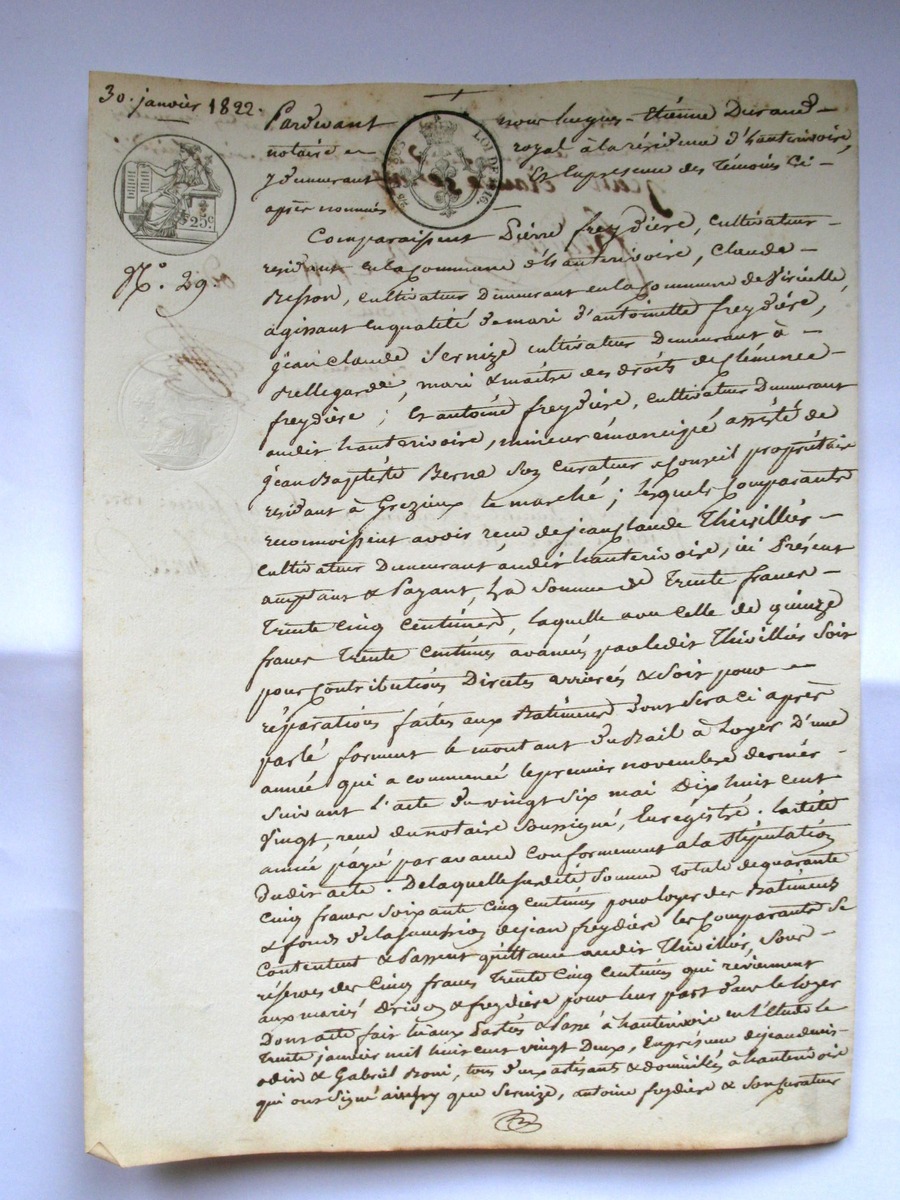 30. janvier 1822.
Pardevant nous hugues-étienne Durand
notaire royal à la résidence d'hauterivoire,
y demeurant Et En presence des Témoins Ci-
après nommés
LOI DE 1816.
25c.
N.° 29
Comparaissent Pierre freydière, cultivateur
residant en la Commune d'hauterivoire, Claude
Besson, cultivateur Demeurant en la Commune de Viricelle
agissant en qualité de mari d'antoinette freydière,
jean claude Sernize cultivateur Demeurant à
Bellegarde, mari & maitre des droits de Clémence
freydière; Et antoine freydière, cultivateur Demeurant
audit hauterivoire, mineur émancipé assisté de
jean Baptiste Berne Son Curateur & Conseil propriétaire
residant à Grezieux le marché; lesquels Comparants
reconnoissent avoir reçu de jean claude Thivilliés
cultivateur Demeurant audit hauterivoire, ici Présent
acceptant & Payant, La Somme de Trente francs
Trente Cinq Centimes, laquelle avec celle de quinze
francs Trente Centimes avancés par ledit Thivilliés Soit
pour Contributions Directes arrierés & Soit pour
réparations faites aux Batimens dont Sera ci après
parlé forment le montant du Bail à Loyer D'une
année qui a commencé le premier novembre dernier
Suivant l'acte du vingt Six mai Dix huit cent
Vingt, reçu du notaire Soussigné, Enregistré. ladite
année payé par avance conformement a la Stipulation
Dudit acte. De laquelle Susdité Somme Totale de quarante
Cinq francs Soixante Cinq Centimes pour loyer des Batimens
& fonds de la Succession de jean freydière les Comparants Se
Contentent & Passent quittance audit Thivilliés, Sous
réserves des Cinq francs Trente Cinq Centimes qui reviennent
aux mariés Drivon & freydière pour leur part dans le loyer
Dont acte fait lu aux Parties & Passé à hauterivoire en L'Etude le
Trente janvier mil huit cent vingt Deux, En presence de jean denis
odin & Gabriel Boni, tous deux artisants & domiciliés à hauterivoire
qui ont Signé ainsy que Sernize, antoine freydière & Son curateur